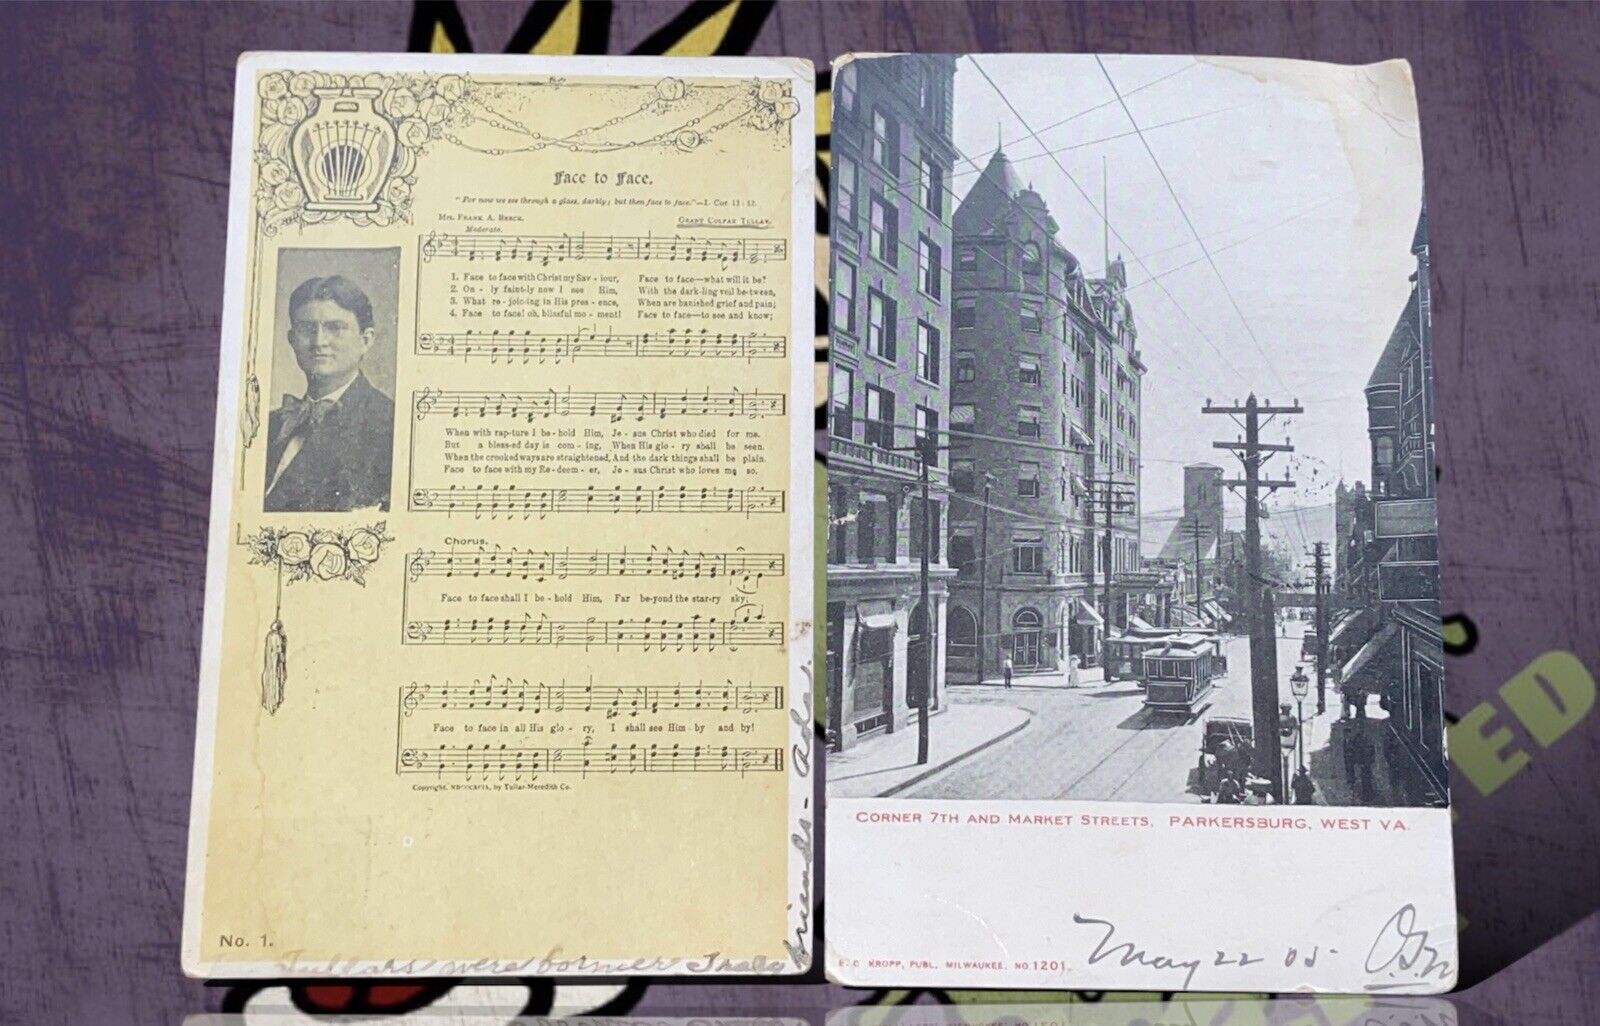 Face to Face.
"For now we see through a glass, darkly; but then face to face."—I. Cor. 13:12.
Mrs. Frank A. Breck. Grant Colfax Tullar.
Moderato.
1. Face to face with Christ my Sav - iour, Face to face—what will it be?
2. On - ly faint-ly now I see Him, With the dark-ling veil be-tween,
3. What re - joic-ing in His pres - ence, When are banished grief and pain;
4. Face to face! oh, blissful mo - ment! Face to face—to see and know;
When with rap-ture I be - hold Him, Je - sus Christ who died for me.
But a bless-ed day is com - ing, When His glo - ry shall be seen.
When the crooked ways are straightened, And the dark things shall be plain.
Face to face with my Re-deem - er, Je - sus Christ who loves me so.
Chorus.
Face to face shall I be - hold Him, Far be-yond the star-ry sky;
Face to face in all His glo - ry, I shall see Him by and by!
Copyright, MDCCCXCIX, by Tullar-Meredith Co.
No. 1.
Tullars were former Tracy
friends - Ada.
CORNER 7TH AND MARKET STREETS, PARKERSBURG, WEST VA.
E. C. KROPP, PUBL. MILWAUKEE. NO. 1201.
May 22 05-
ED